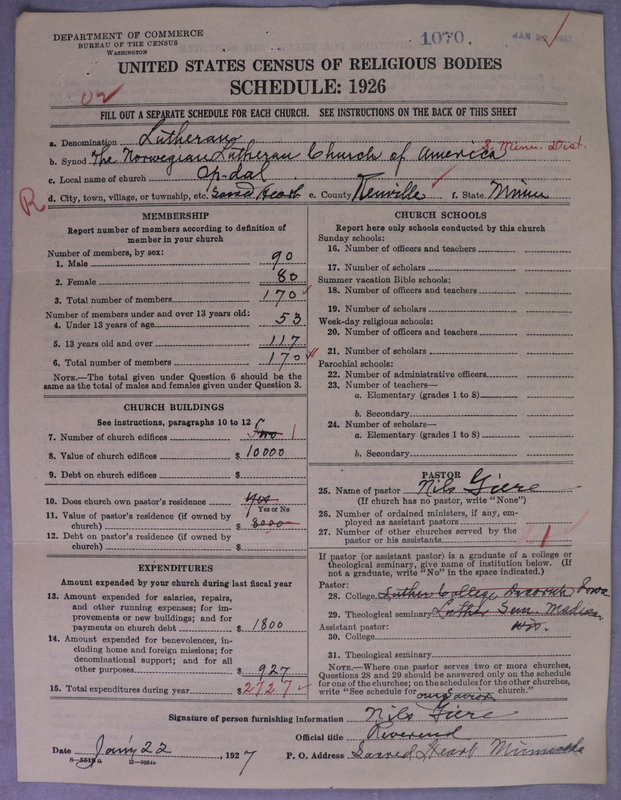 DEPARTMENT OF COMMERCE
BUREAU OF THE CENSUS
WASHINGTON
1070.
UNITED STATES CENSUS OF RELIGIOUS BODIES
SCHEDULE: 1926
FILL OUT A SEPARATE SCHEDULE FOR EACH CHURCH. SEE INSTRUCTIONS ON THE BACK OF THIS SHEET
a. Denomination Lutheran
b. Synod The Norwegian Lutheran Church of America S. Minn. Dist.
c. Local name of church Op-dal
d. City, town, village, or township, etc. Sacred Heart e. County Renville f. State Minn
R
MEMBERSHIP
Report number of members according to definition of member in your church
Number of members, by sex:
1. Male 90
2. Female 80
3. Total number of members 170
Number of members under and over 13 years old:
4. Under 13 years of age 53
5. 13 years old and over 117
6. Total number of members 170
NOTE.—The total given under Question 6 should be the same as the total of males and females given under Question 3.
CHURCH BUILDINGS
See instructions, paragraphs 10 to 12
7. Number of church edifices Two 1
8. Value of church edifices $ 10000
9. Debt on church edifices $
10. Does church own pastor's residence Yes
Yes or No
11. Value of pastor's residence (if owned by church) $ 8000
12. Debt on pastor's residence (if owned by church) $
EXPENDITURES
Amount expended by your church during last fiscal year
13. Amount expended for salaries, repairs, and other running expenses; for improvements or new buildings; and for payments on church debt $ 1800
14. Amount expended for benevolences, including home and foreign missions; for denominational support; and for all other purposes $ 927
15. Total expenditures during year $ 2727
CHURCH SCHOOLS
Report here only schools conducted by this church
Sunday schools:
16. Number of officers and teachers
17. Number of scholars
Summer vacation Bible schools:
18. Number of officers and teachers
19. Number of scholars
Week-day religious schools:
20. Number of officers and teachers
21. Number of scholars
Parochial schools:
22. Number of administrative officers
23. Number of teachers—
a. Elementary (grades 1 to 8)
b. Secondary
24. Number of scholars—
a. Elementary (grades 1 to 8)
b. Secondary
PASTOR
25. Name of pastor Nils Giere
(If church has no pastor, write "None")
26. Number of ordained ministers, if any, employed as assistant pastors
27. Number of other churches served by the pastor or his assistants 1
If pastor (or assistant pastor) is a graduate of a college or theological seminary, give name of institution below. (If not a graduate, write "No" in the space indicated.)
Pastor:
28. College Luther College Decorah Iowa
29. Theological seminary Luther Sem. Madison
Wis.
Assistant pastor:
30. College
31. Theological seminary
NOTE.—Where one pastor serves two or more churches, Questions 28 and 29 should be answered only on the schedule for one of the churches; on the schedules for the other churches, write "See schedule for our Savior church."
Signature of person furnishing information Nils Giere
Official title Reverend
Date Jan'y 22, 1927
P. O. Address Sacred Heart Minnesota